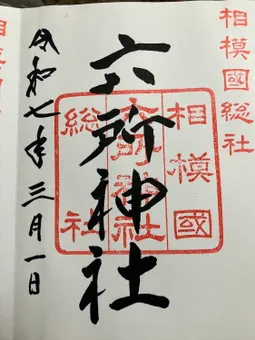 相模國総社
六所神社
相模國
六所神社
総社
令和七年三月一日